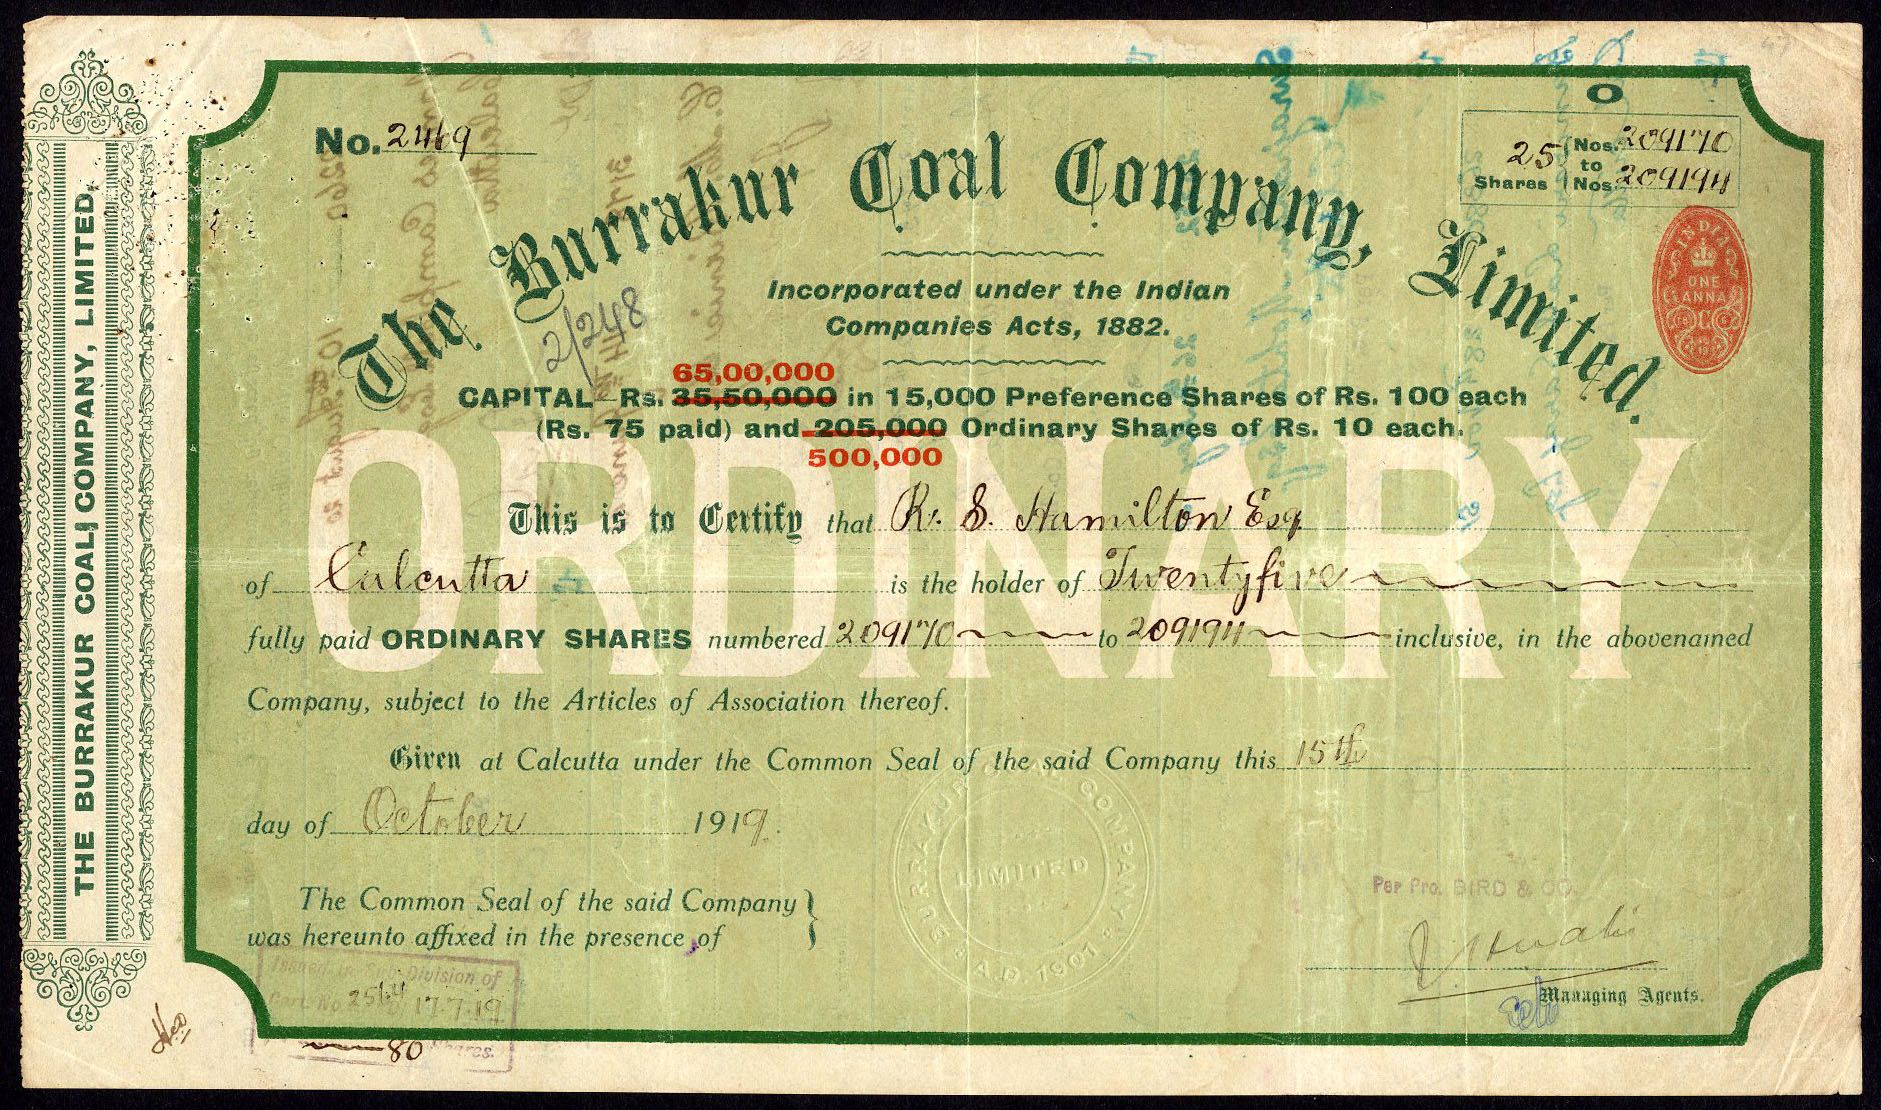 THE BURRAKUR COAL COMPANY, LIMITED.
O
No. 2469
25 Shares
Nos. 209170
to
Nos. 209194
The Burrakur Coal Company, Limited.
INDIA
ONE
ANNA
Incorporated under the Indian
Companies Acts, 1882.
2/248
65,00,000
CAPITAL—Rs. 35,50,000 in 15,000 Preference Shares of Rs. 100 each
(Rs. 75 paid) and 205,000 Ordinary Shares of Rs. 10 each.
500,000
ORDINARY
This is to Certify that R. S. Hamilton Esq
of Calcutta is the holder of Twentyfive
fully paid ORDINARY SHARES numbered 209170 to 209194 inclusive, in the abovenamed
Company, subject to the Articles of Association thereof.
Given at Calcutta under the Common Seal of the said Company this 15th
day of October 1919.
THE BURRAKUR COAL COMPANY
LIMITED
A.D. 1901
The Common Seal of the said Company
was hereunto affixed in the presence of
Per Pro. BIRD & CO.
Managing Agents.
Issued in Sub Division of
Cert. No 2564 17.7.19
80 Shares.